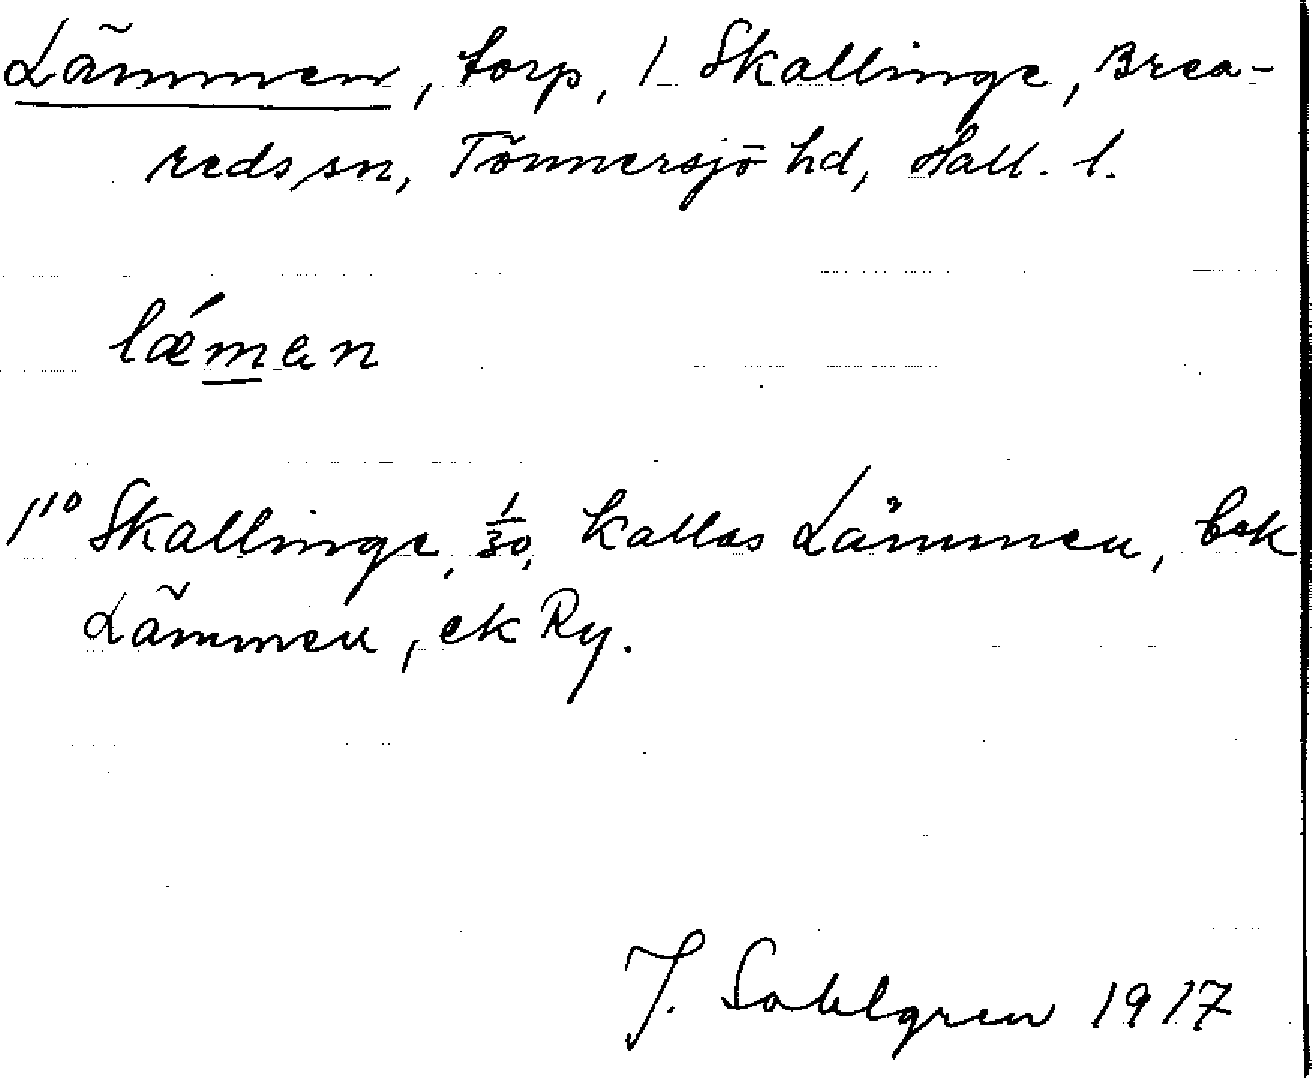 Lämmen, torp, 1 Skallinge, Brea-
reds sn, Tönnersjö hd, Hall. l.
lǽman
1¹⁰ Skallinge, 1/30, kallas Lämmen, bek
Lämmen, ek Ry.
J. Sahlgren 1917